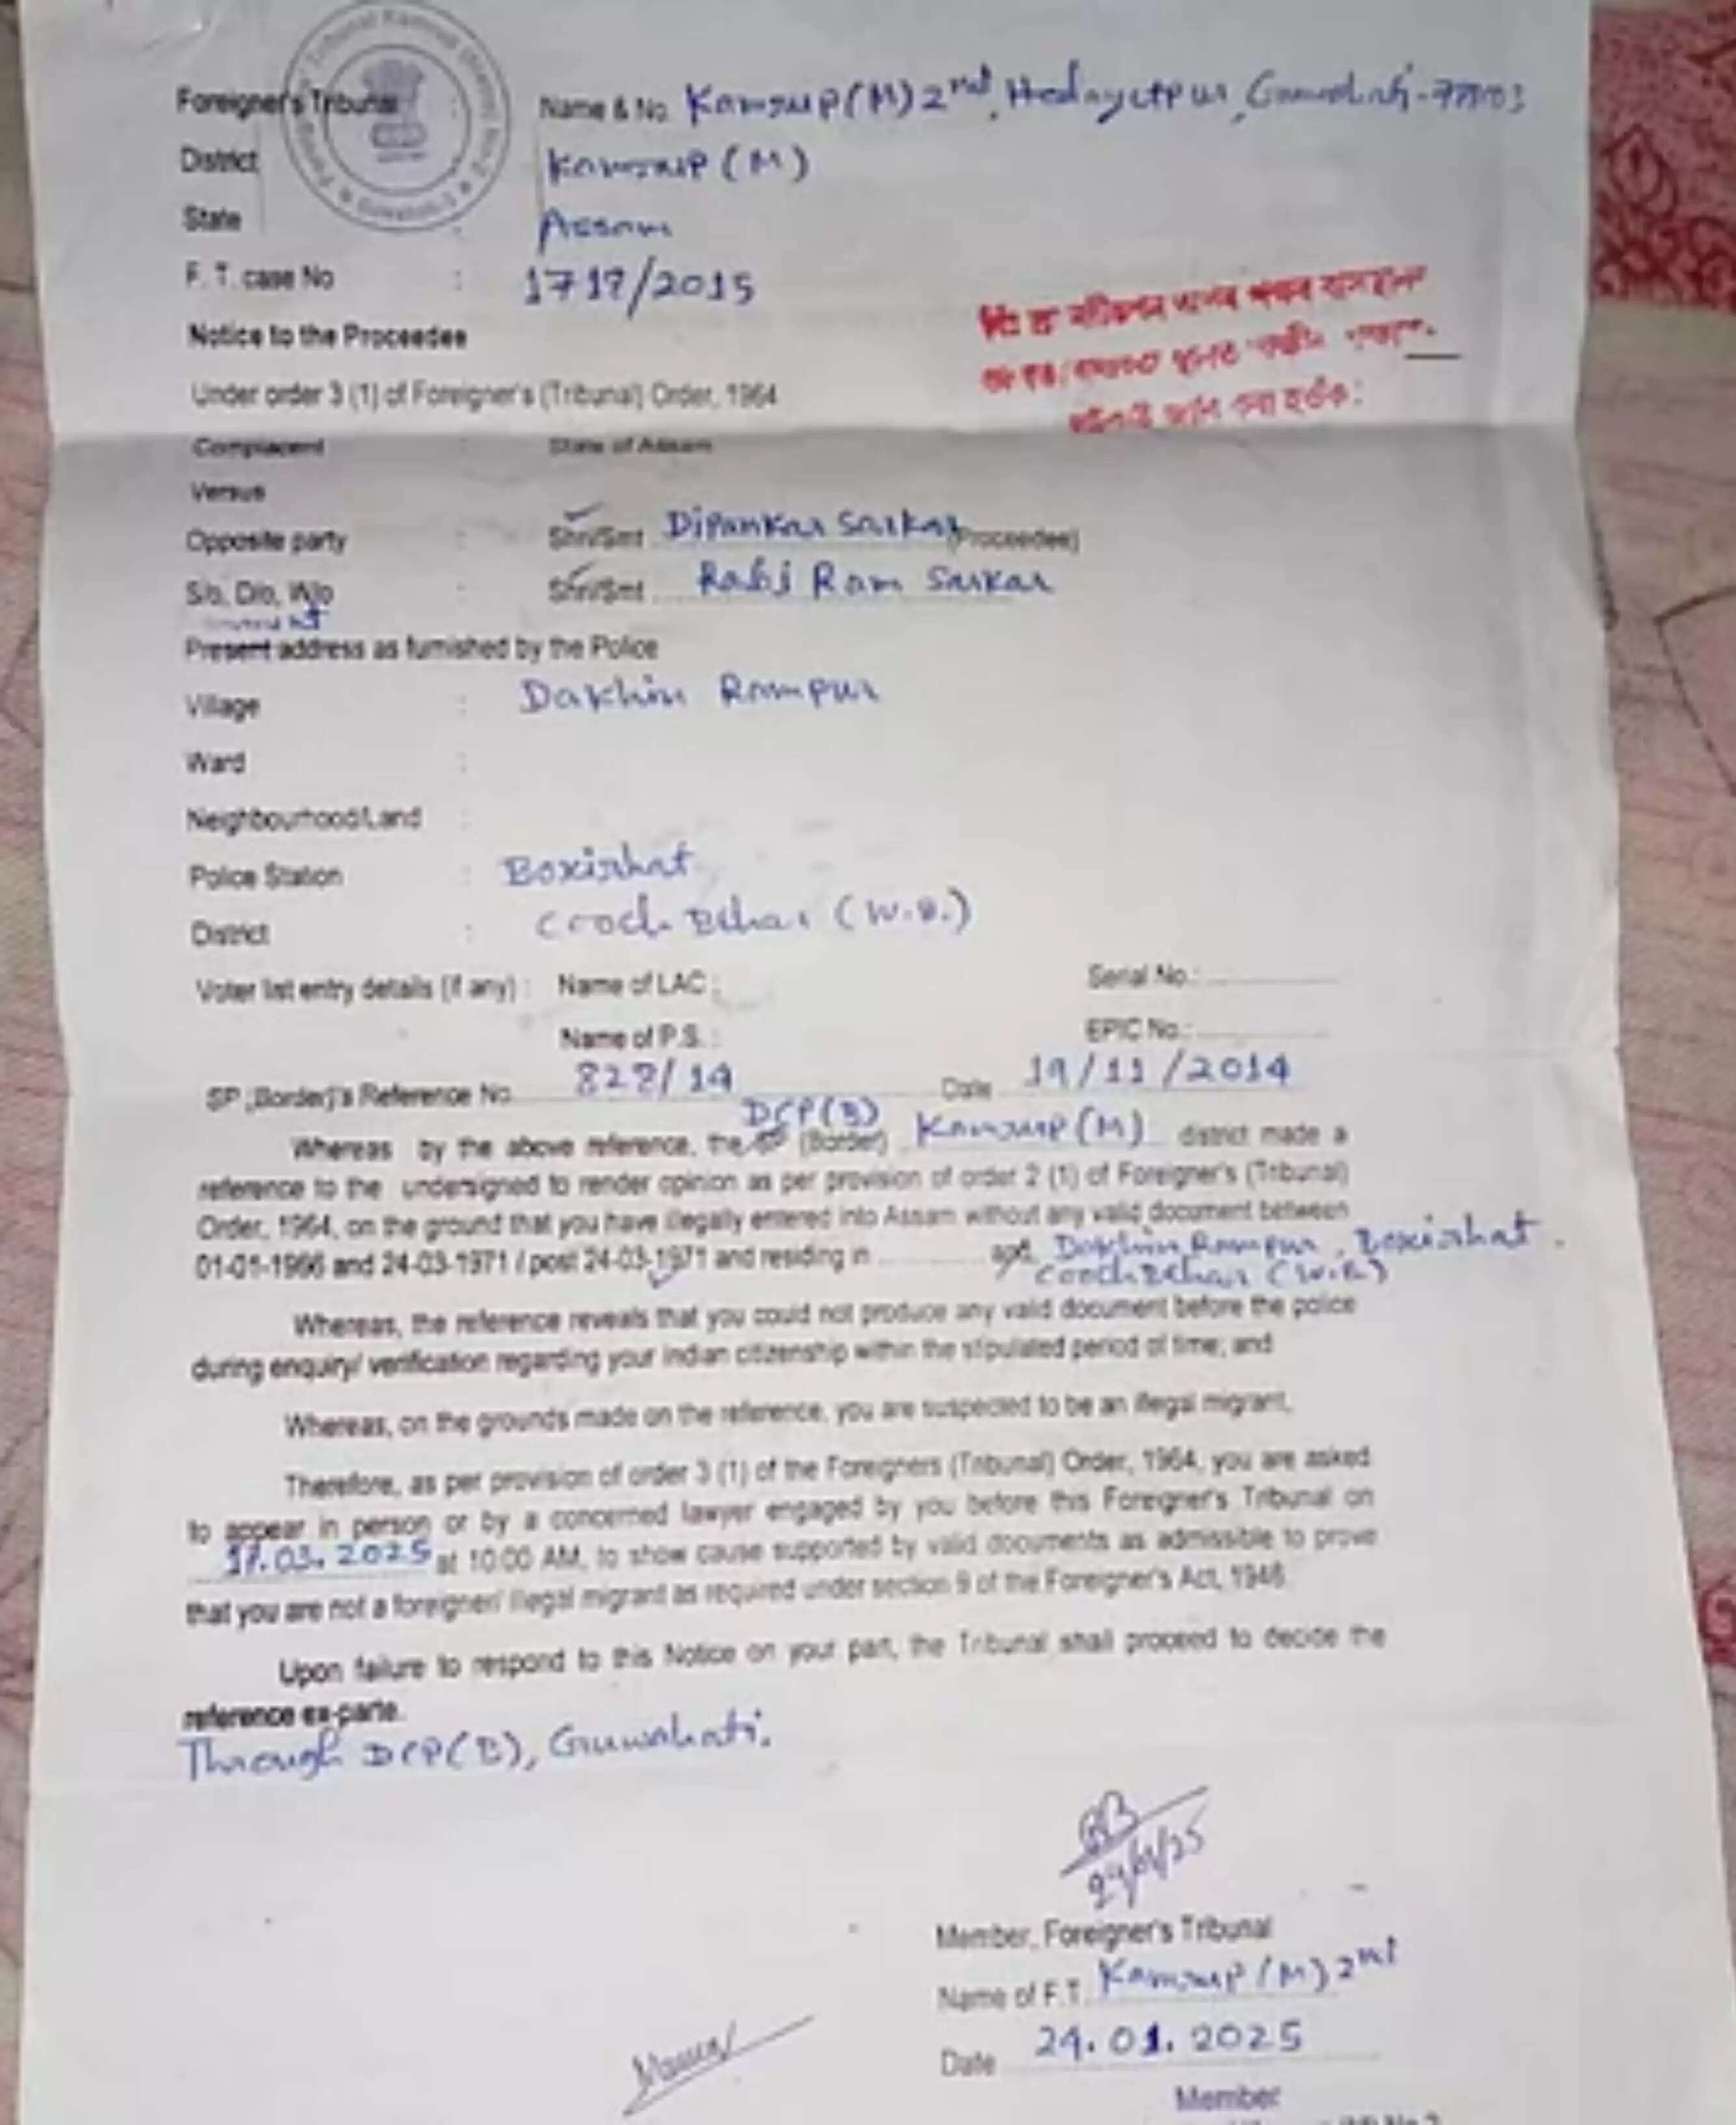 Foreigner's Tribunal : Name & No. Kamrup(M) 2nd, Hedayetpur, Guwahati-
District Kamrup (M)
State : Assam
F. T. case No : /2015
Notice to the Proceedee
Under order 3 (1) of Foreigner's (Tribunal) Order, 1964
Complacent : State of Assam
Versus
Opposite party : Shri/Smt Dipankar Sarkar (Proceedee)
S/o, D/o, W/o : Shri/Smt Rabi Ram Sarkar
Present address as furnished by the Police
Village : Dakhin Rampur
Ward :
Neighbourhood/Land :
Police Station : Boxirhat
District : Cooch Behar (W.B.)
Voter list entry details (if any) : Name of LAC : Serial No.:
Name of P.S. : EPIC No.:
SP (Border)'s Reference No Date /11/2014
DCP(B)
Whereas by the above reference, the SP (Border) Kamrup(M) district made a
reference to the undersigned to render opinion as per provision of order 2 (1) of Foreigner's (Tribunal)
Order, 1964, on the ground that you have illegally entered into Assam without any valid document between
01-01-1966 and 24-03-1971 / post 24-03-1971 and residing in Dakhin Rampur, Boxirhat.
Cooch Behar (W.B.)
Whereas, the reference reveals that you could not produce any valid document before the police
during enquiry/ verification regarding your Indian citizenship within the stipulated period of time; and
Whereas, on the grounds made on the reference, you are suspected to be an illegal migrant,
Therefore, as per provision of order 3 (1) of the Foreigners (Tribunal) Order, 1964, you are asked
to appear in person or by a concerned lawyer engaged by you before this Foreigner's Tribunal on
.03.2025 at 10:00 AM, to show cause supported by valid documents as admissible to prove
that you are not a foreigner/ illegal migrant as required under section 9 of the Foreigner's Act, 1946.
Upon failure to respond to this Notice on your part, the Tribunal shall proceed to decide the
reference ex-parte.
Through DCP(B), Guwahati.
Member, Foreigner's Tribunal
Name of F.T. Kamrup (M) 2nd
Date .01.2025
Member